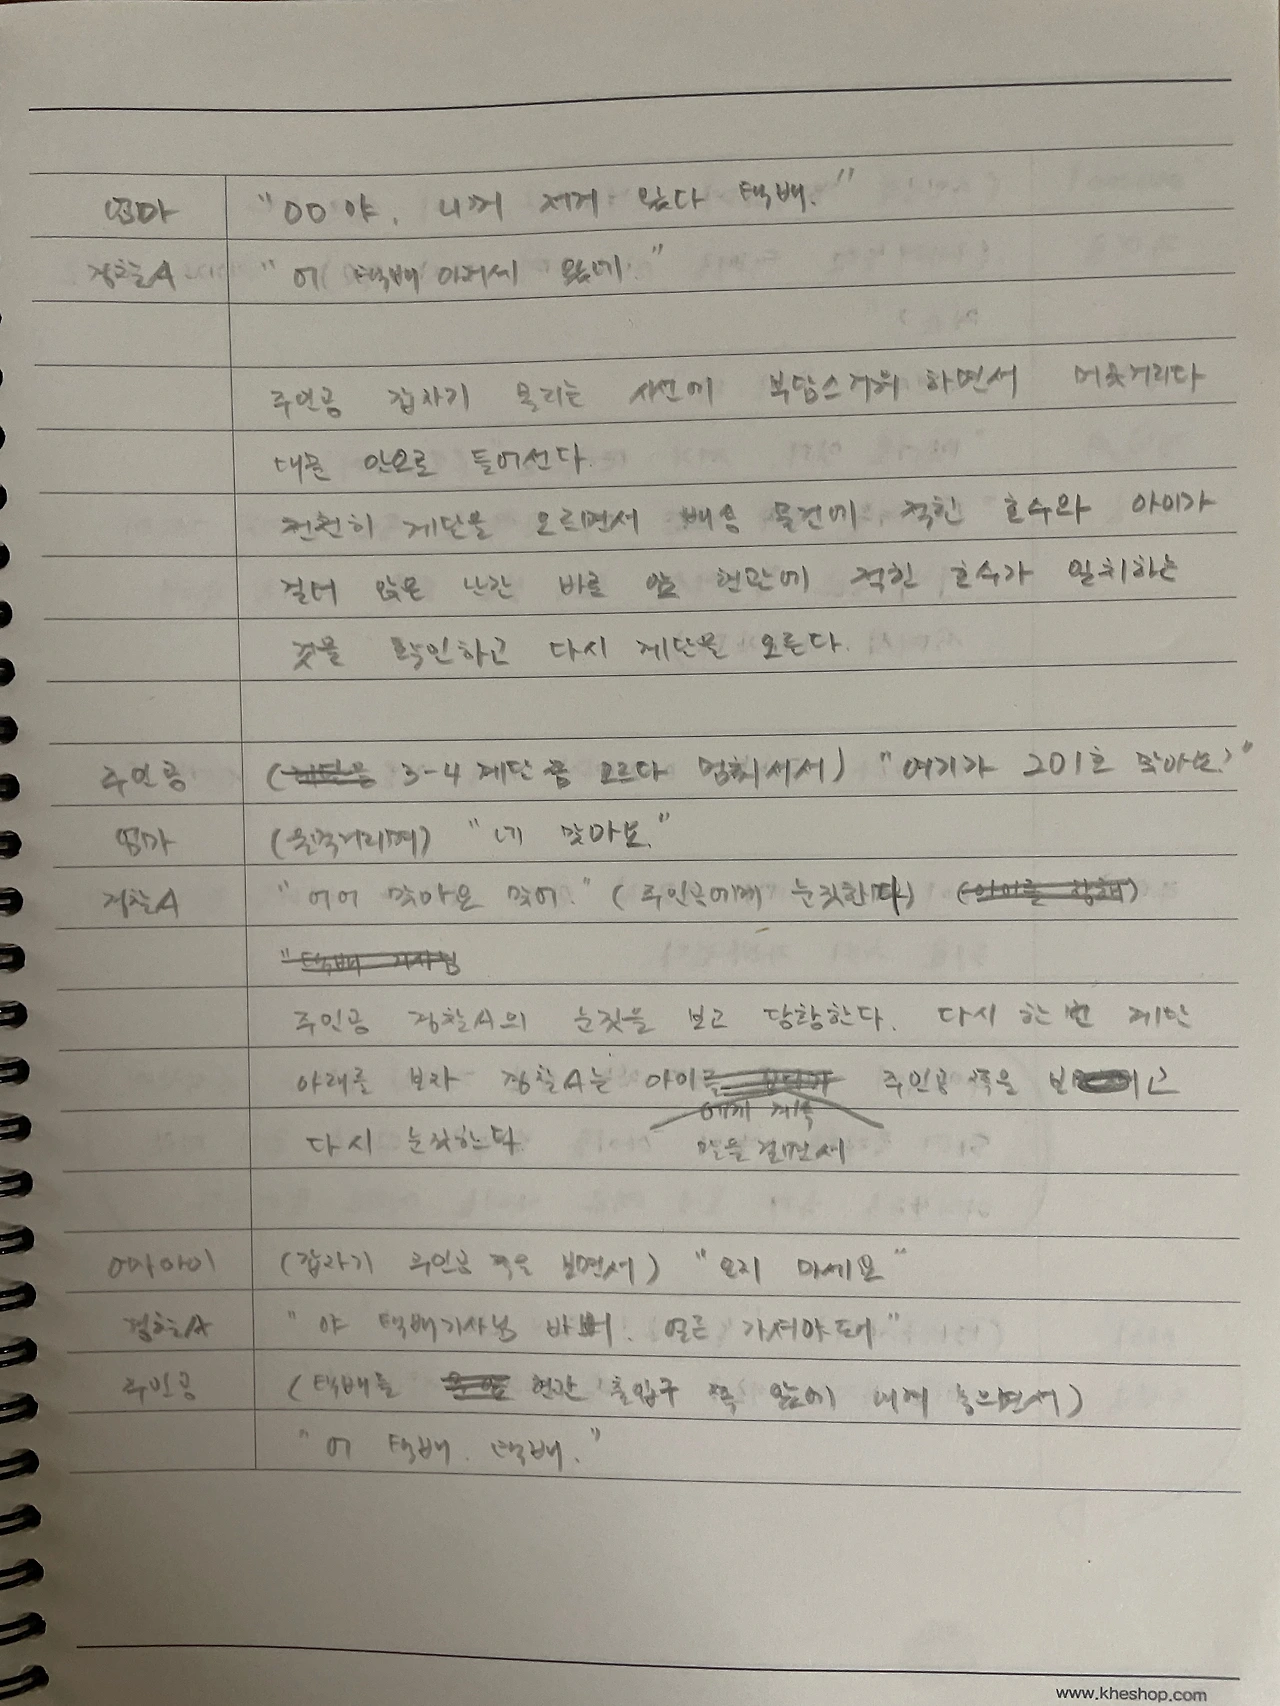 엄마 "OO야. 니꺼 저기 왔다 택배."
경찰A "어 택배 아저씨 왔네."
주인공 갑자기 몰리는 시선에 부담스거워 하면서 머뭇거리다
대문 안으로 들어선다.
천천히 계단을 오르면서 배송 물건에 적힌 호수와 아이가
걸터 앉은 난간 바로 앞 현관에 적힌 호수가 일치하는
것을 확인하고 다시 계단을 오른다.
주인공 (계단을 3-4 계단쯤 오르다 멈춰서서) "여기가 201호 맞아요?"
엄마 (울먹거리며) "네 맞아요."
경찰A "어어 맞아요 맞어." (주인공에게 눈짓한다) (아이를 향해)
"택배 기사님
주인공 경찰A의 눈짓을 보고 당황한다. 다시 한번 계단
아래를 보자 경찰A는 아이를 보다가 주인공 쪽을 보고
에게 계속
다시 눈짓한다. 말을 걸면서
여자아이 (갑자기 주인공 쪽을 보면서) "오지 마세요"
경찰A "야 택배기사님 바뻐. 얼른 가셔야 돼"
주인공 (택배를 현관 출입구 쪽 앞에 내려 놓으면서)
"어 택배. 택배."
www.kheshop.com